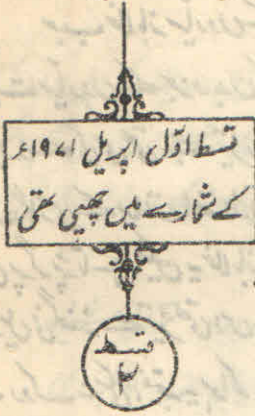 قسط اوّل اپریل ۱۹۷۱ء
کے شمارے میں چھپی تھی
قسط
۲